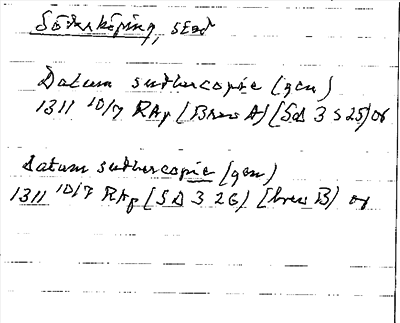 Söderköping, stad
Datum suthercopie (gen)
1311 10/7 RAp (Brev A) (SD 3 s 25) or
Datum suthercopie (gen)
1311 10/7 RAp (SD 3 26) (brev B) or